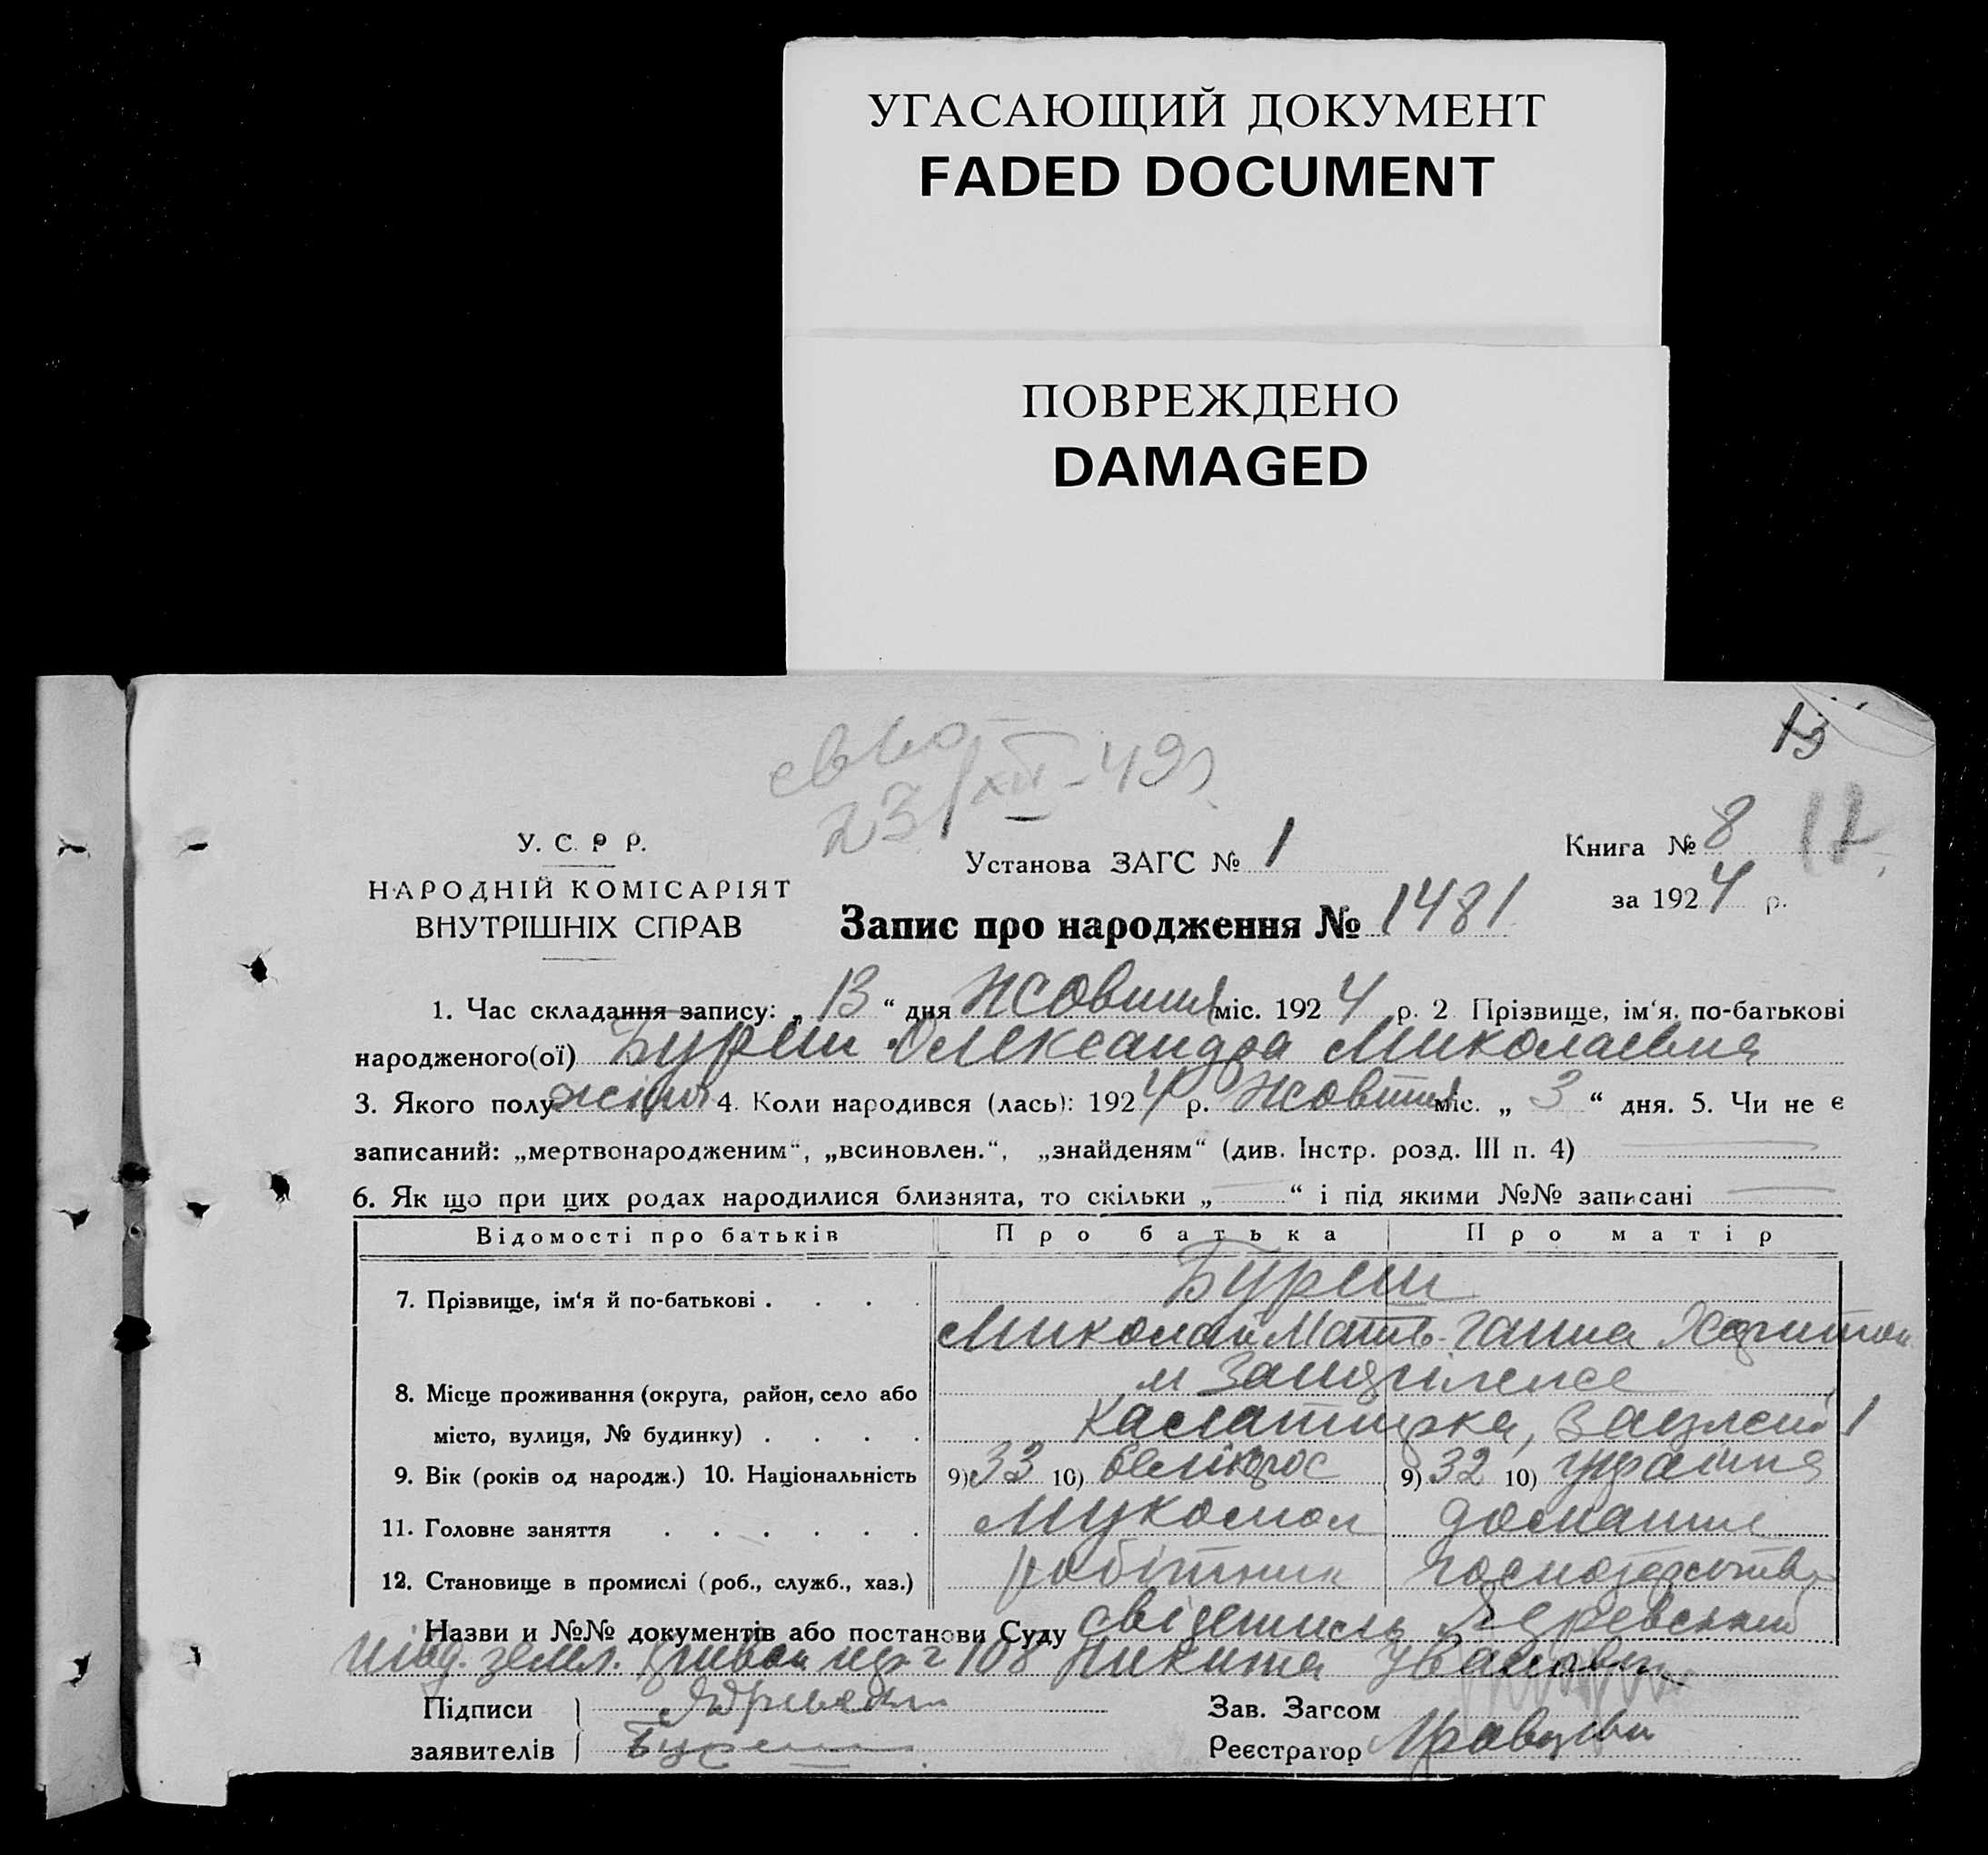 УГАСАЮЩИЙ ДОКУМЕНТ
FADED DOCUMENT
ПОВРЕЖДЕНО
DAMAGED
13
23/XII-49г.
У. С. Р. Р.
НАРОДНІЙ КОМІСАРІЯТ
ВНУТРІШНІХ СПРАВ
Установа ЗАГС № 1
Книга № 8
за 1924 р.
Запис про народження № 1481
1. Час складання запису: „ 13 “ дня Жовтня міс. 1924 р. 2 Прізвище, ім‘я, по-батькові
народженого(ої) Буреш Олександра Миколаевна
3. Якого полу жіноч 4. Коли народився (лась): 1924 р. Жовтня міс. „ 3 “ дня. 5. Чи не є
записаний: „мертвонародженим“, „всиновлен.“, „знайденям“ (див. Інстр. розд. III п. 4)
6. Як що при цих родах народилися близнята, то скільки „ “ і під якими №№ записані
Відомості про батьків Про батька Про матір
7. Прізвище, ім‘я й по-батькові . . . . Буреш
Миколай Матв. Ганна Харитон
8. Місце проживання (округа, район, село або
місто, вулиця, № будинку) . . . .
9. Вік (років од народж.) 10. Національність 9) 33 10) Великорос 9) 32 10) Україна
11. Головне заняття . . . . . . Мукомол домашнє
12. Становище в промислі (роб., служб., хаз.) робітник господарство
Назви и №№ документів або постанови Суду
108 Никита
Підписи
заявителів Буреш
Зав. Загсом
Реєстратор